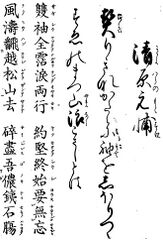 清原元輔
契りきなかたみに袖をしほりつゝ
すゑの松山波こさしとは
雙袖全霑淚兩行　約堅終始要無忘
風濤翻越松山去　碎盡吾儂鐵石腸